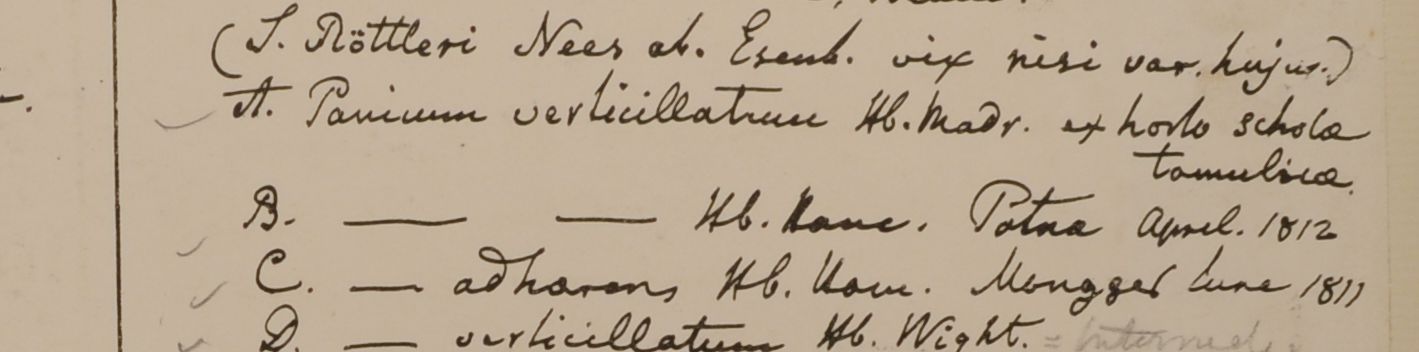 (S. Röttleri Nees ab. Esenb. vix nisi var. hujus.)
A. Panicum verticillatum Hb. Madr. ex horto scholæ
tamulicæ.
B. — — Hb. Ham. Patna April. 1812
C. — adhærens Hb. Ham. Mongger June 1811
D. — verticillatum Hb. Wight. = intermed.